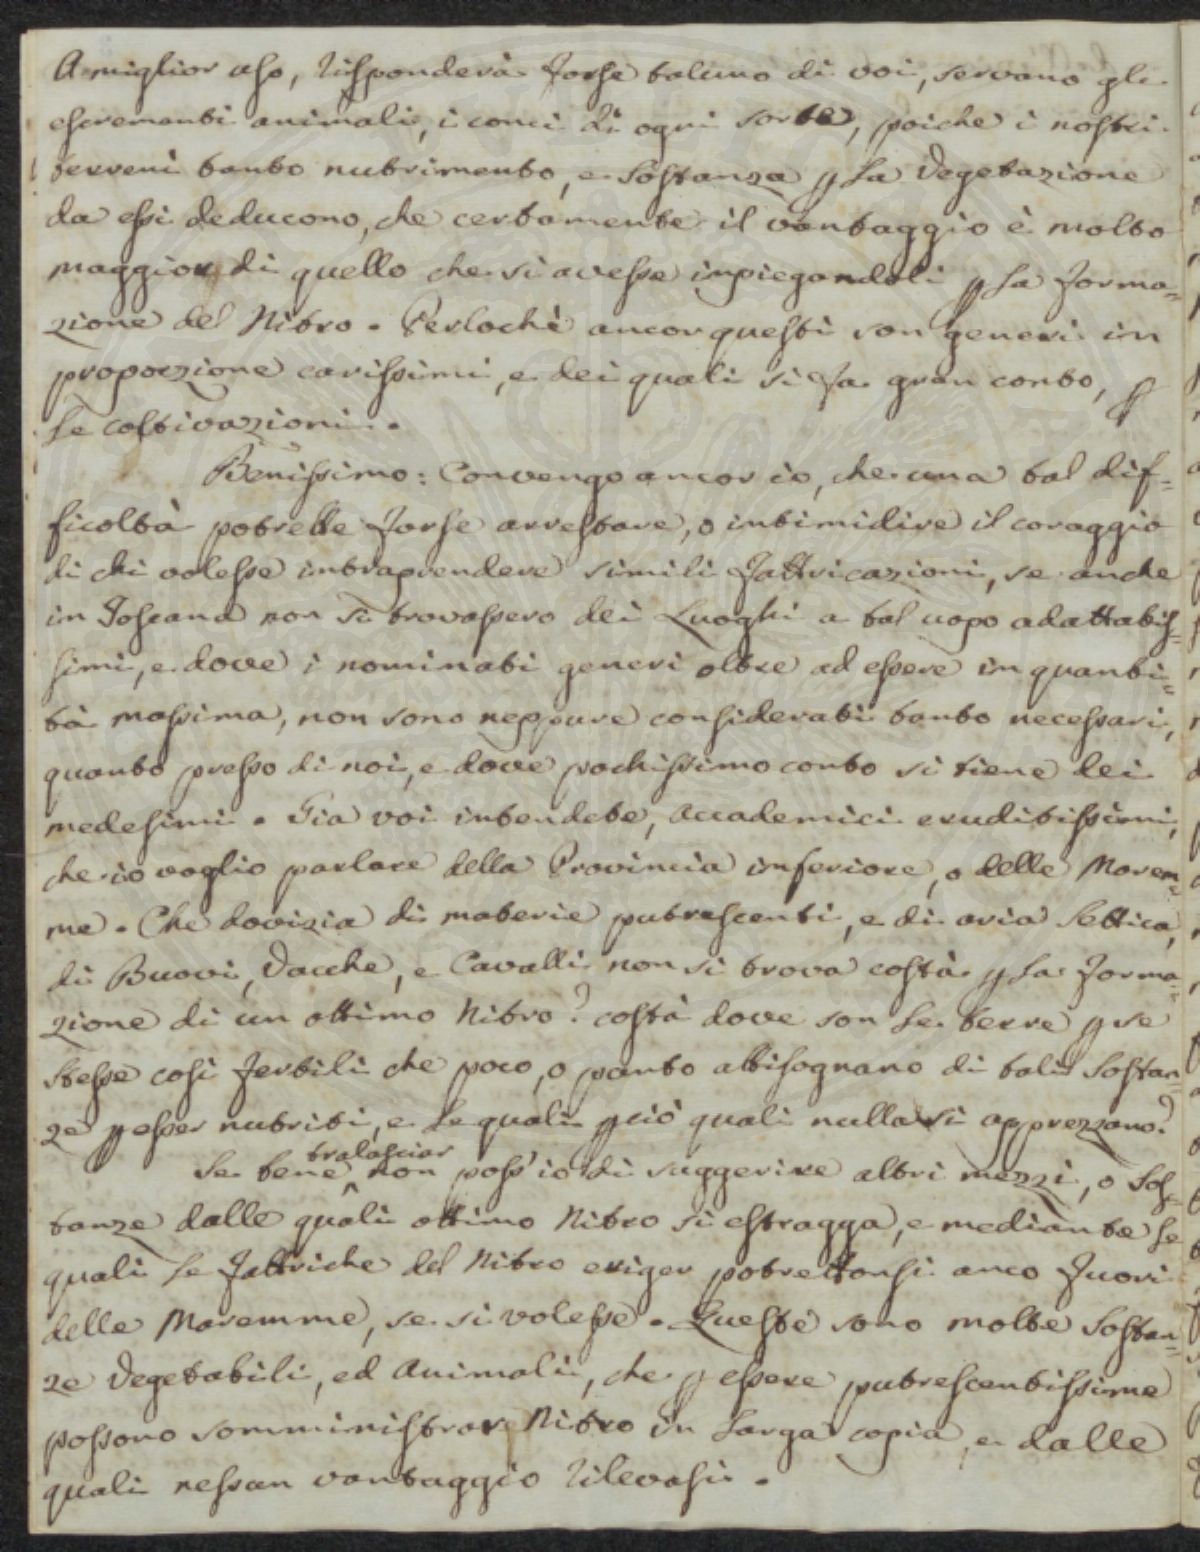 A miglior uso, risponderà forse taluno di voi, servano gli
escrementi animali, i conci di ogni sorte, poiche i nostri
terreni tanto nutrimento, e sostanza p la Vegetazione
da essi deducono, che certamente il vantaggio è molto
maggior di quello che si avesse inpiegandoli p la forma=
zione del Nitro. Perlochè ancor questi son generi in
proporzione carissimi, e dei quali si fa gran conto, p
le coltivazioni.
Benissimo: Convengo ancor io, che una tal dif=
ficoltà potrebbe forse arrestare, o intimidire il coraggio
di chi volesse intraprendere simili fabbricazioni, se anche
in Toscana non si trovassero dei Luoghi a tal uopo adattabis=
simi, e dove i nominati generi oltre ad essere in quanti=
tà massima, non sono neppure considerati tanto necessari,
quanto presso di noi, e dove pochissimo conto si tiene dei
medesimi. Gia voi intendete, Accademici eruditissimi,
che io voglio parlare della Provincia inferiore, o delle Marem=
me. Che dovizia di materie putrescenti, e di aria settica,
di Buovi, Vacche, e Cavalli non si trova costà p la forma=
zione di un ottimo Nitro? costà dove son le terre p se
stesse così fertili che poco, o punto abbisognano di tali sostan=
ze p esser nutriti, e le quali p ciò quali nulla si apprezzano?
Se bene tralasciar non poss'io di suggerire altri mezzi, o sos=
tanze dalle quali ottimo Nitro si estragga, e mediante le
quali le fabbriche del Nitro eriger potrebbonsi anco fuori
delle Maremme, se si volesse. Queste sono molte sostan=
ze Vegetabili, ed Animali, che p essere putrescentissime
possono somministrare Nitro in larga copia, e dalle
quali nessun vantaggio rilevasi.